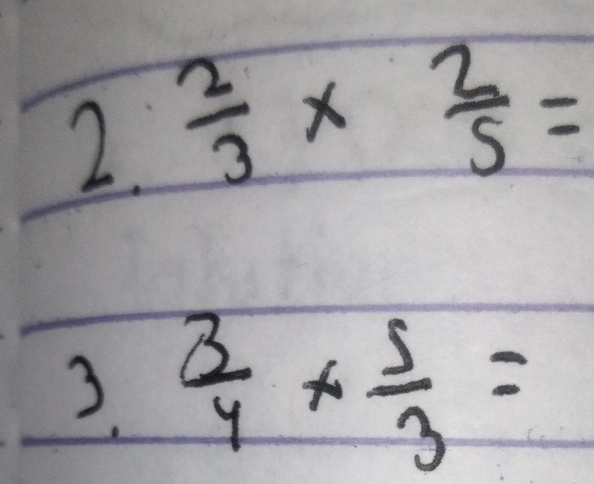 2. 2/3 × 2/5 =
3. 3/4 × 5/3 =